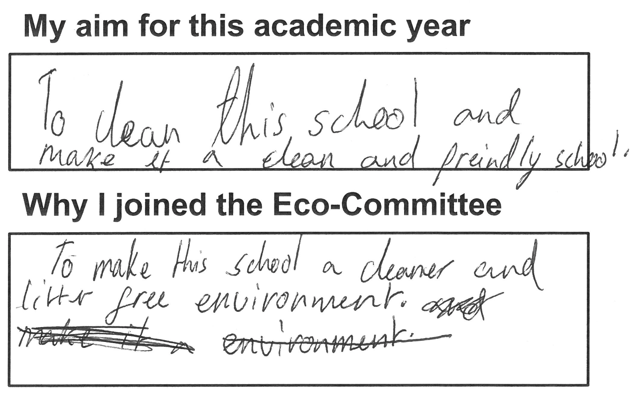 My aim for this academic year
To clean this school and
make it a clean and preindly school.
Why I joined the Eco-Committee
To make this school a cleaner and
litter free environment. and
make it a environment.